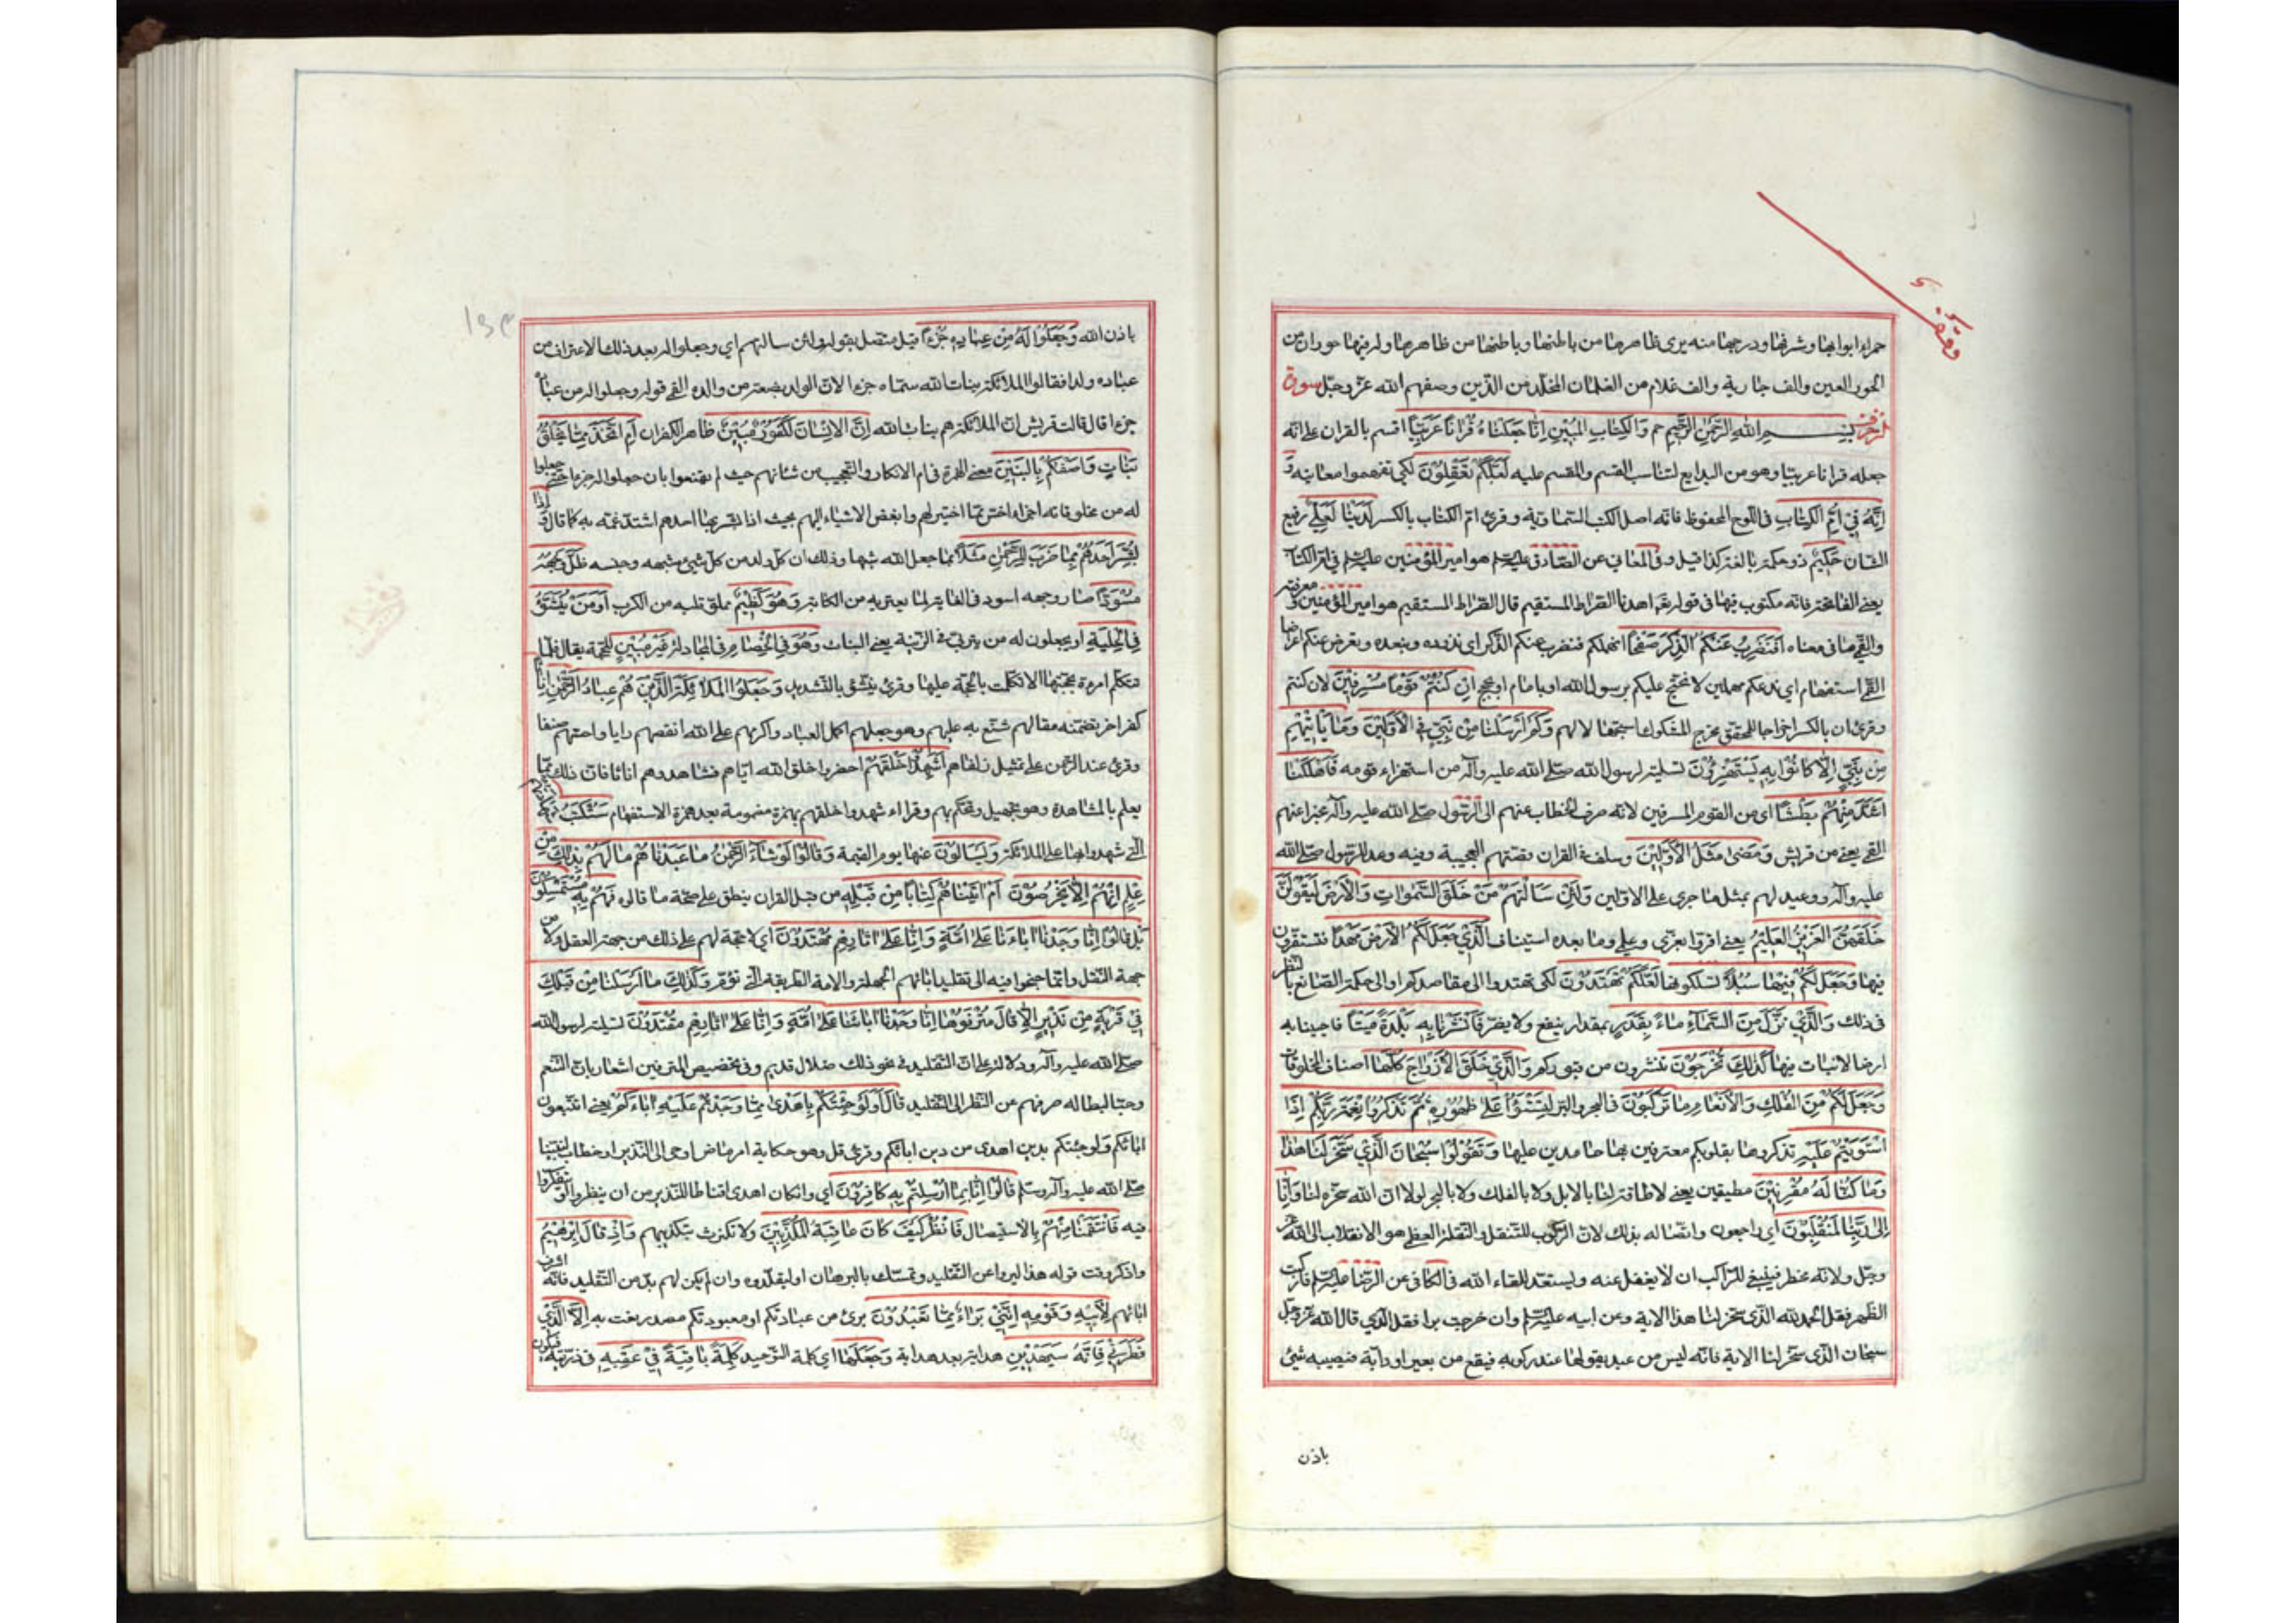 وقف
حمراء ابوابها وشرفها ودرجها منه يرى ظاهرها من باطنها وباطنها من ظاهرها ولم فيها حوران من
الحور العين والف جارية والف غلام من الغلمان المخلدين الذين وصفهم الله عز وجل سورة
الزخرف بسم الله الرحمن الرحيم حم والكتاب المبين انا جعلناه قرانا عربيا اقسم بالقران على انه
جعله قرانا عربيا وهو من البدايع لتناسب القسم والمقسم عليه لعلكم تعقلون لكي تفهموا معانيه و
انه في ام الكتاب في اللوح المحفوظ فانه اصل الكتب السماوية وقرئ ام الكتاب بالكسر لدينا لعلي رفيع
الشان حكيم ذو حكمة بالغة كذا قيل وفي المعاني عن الصادق عليه السلم هو امير المؤمنين عليه السلم في ام الكتاب
يعني الفاتحة فانه مكتوب فيها في قوله تعم اهدنا الصراط المستقيم قال الصراط المستقيم هو امير المؤمنين و معرفته
والقمي ما في معناه افنضرب عنكم الذكر صفحا انهملكم فنضرب عنكم الذكر اي نذوده ونبعده ونعرض عنكم اعراضا
القمي استفهام اي ندعكم مهملين لا نحتج عليكم برسول الله او بامام او بحجج ان كنتم قوما مسرفين لان كنتم
وقرئ ان بالكسر اخراجا للمحقق مخرج المشكوك استجهالا لهم وكم ارسلنا من نبي في الاولين وما ياتيهم
من نبي الا كانوا به يستهزؤن تسلية لرسول الله صلى الله عليه وآله من استهزاء قومه فاهلكنا
اشد منهم بطشا اي من القوم المسرفين لانه صرف الخطاب عنهم الى الرسول صلى الله عليه وآله مخبرا عنهم
القمي يعني من قريش ومضى مثل الاولين وسلف في القران قصتهم العجيبة وفيه وعد للرسول صلى الله
عليه وآله ووعيد لهم بمثل ما جرى على الاولين ولئن سالتهم من خلق السموات والارض ليقولن
خلقهن العزيز العليم يعني اقروا بعزي وعلمي وما بعده استيناف الذي جعل لكم الارض مهدا فتستقرون
فيها وجعل لكم فيها سبلا تسلكونها لعلكم تهتدون لكي تهتدوا الى مقاصدكم او الى حكمة الصانع بالنظر
في ذلك والذي نزل من السماء ماء بقدر بمقدار ينفع ولا يضر فانشرنا به بلدة ميتا فاحيينا به
ارضا لا نبات فيها كذلك تخرجون تنشرون من قبوركم والذي خلق الازواج كلها اصناف المخلوقات
وجعل لكم من الفلك والانعام ما تركبون في البحر والبر لتستوا على ظهوره ثم تذكروا نعمة ربكم اذا
استويتم عليه تذكروها بقلوبكم معترفين بها حامدين عليها وتقولوا سبحان الذي سخر لنا هذا
وما كنا له مقرنين مطيقين يعني لا طاقة لنا بالابل ولا بالفلك ولا بالبحر لولا ان الله سخره لنا وانا
الى ربنا لمنقلبون اي راجعون واتصاله بذلك لان الركوب للتنقل والنقلة العظمى هو الانقلاب الى الله عز
وجل ولانه مخطر فينبغي للراكب ان لا يغفل عنه ويستعد للقاء الله في الكافي عن الرضا عليه السلم فان ركبت
الظهر فقل الحمد لله الذي سخر لنا هذا الاية وعن ابيه عليه السلم وان خرجت برا فقل الذي قال الله عز وجل
سبحان الذي سخر لنا الاية فانه ليس من عبد يقولها عند ركوبه فيقع من بعير او دابة فيصيبه شيئ
باذن
باذن الله وجعلوا له من عباده جزءا قيل متصل بقوله ولئن سالتهم اي وجعلوا له بعد ذلك الاعتراف من
عباده ولدا فقالوا الملائكة بنات الله سماه جزءا لان الولد بضعة من والده القمي قوله وجعلوا له من عباده
جزءا قال قالت قريش ان الملائكة هم بنات الله ان الانسان لكفور مبين ظاهر الكفران ام اتخذ مما يخلق
بنات واصفكم بالبنين معنى الهمزة في ام الانكار والتعجيب من شانهم حيث لم يقنعوا بان جعلوا له جزءا حتى جعلوا
له من مخلوقاته اجزاء اخس مما اختير لهم وابغض الاشياء اليهم بحيث اذا بشر بها احدهم اشتد غمه به كما قال واذا
بشر احدهم بما ضرب للرحمن مثلا بما جعل الله شبها وذلك ان كل ولد من كل شيئ شبهه وجنسه ظل وجهه
مسودا صار وجهه اسود في الغاية لما يعتريه من الكابة وهو كظيم مملو قلبه من الكرب اومن ينشؤ
في الحلية او يجعلون له من يتربى في الزينة يعني البنات وهو في الخصام في المجادلة غير مبين للحجة يقال قلما
تتكلم امرءة بحجتها الا تكلمت بالحجة عليها وقرئ ينشؤ بالتشديد وجعلوا الملائكة الذين هم عباد الرحمن اناثا
كفر اخر تضمنه مقالهم شنع به عليهم وهو جعلهم اكمل العباد واكرمهم على الله انقصهم رايا واخسهم صنفا
وقرئ عند الرحمن على تمثيل زلفاهم اشهدوا خلقهم احضروا خلق الله اياهم فشاهدوهم اناثا فان ذلك مما
يعلم بالمشاهدة وهو تجهيل وتهكم بهم وقراء اشهدوا خلقهم بهمزة مضمومة بعد همزة الاستفهام ستكتب شهادتهم
التي شهدوا بها على الملائكة ويسالون عنها يوم القيمة وقالوا لو شاء الرحمن ما عبدناهم ما لهم بذلك من
علم ان هم الا يخرصون ام اتيناهم كتابا من قبله من قبل القران ينطق على صحة ما قالوه فهم به مستمسكون
بل قالوا انا وجدنا اباءنا على امة وانا على اثارهم مهتدون اي لا حجة لهم على ذلك من جهة العقل ولا من
جهة النقل وانما جنحوا فيه الى تقليد ابائهم الجهلة والامة الطريقة التي تؤم وكذلك ما ارسلنا من قبلك
في قرية من نذير الا قال مترفوها انا وجدنا اباءنا على امة وانا على اثارهم مقتدون تسلية لرسول الله
صلى الله عليه وآله ودلالة على ان التقليد في نحو ذلك ضلال قديم وفي تخصيص المترفين اشعار بان التنعم
وحب البطالة صرفهم عن النظر الى التقليد قال اولو جئتكم باهدى مما وجدتم عليه اباءكم يعني اتتبعون
ابائكم ولو جئتكم بدين اهدى من دين ابائكم وقرئ قل وهو حكاية امر ماض اوحي الى النذير او خطاب لنبينا
صلى الله عليه وآله وسلم قالوا انا بما ارسلتم به كافرون اي وان كان اهدى اقناطا للنذير من ان ينظروا او يتفكروا
فيه فانتقمنا منهم بالاستيصال فانظر كيف كان عاقبة المكذبين ولا تكترث بتكذيبهم واذ قال ابرهيم
واذكر وقت قوله هذا ليروا عن التقليد وتمسك بالبرهان او ليقلدوه وان لم يكن لهم بد من التقليد فانه اشرف
ابائهم لابيه وقومه انني براء مما تعبدون برئ من عبادتكم او معبودكم مصدر نعت به الا الذي
فطرني فانه سيهدين هداية بعد هداية وجعلها اي كلمة التوحيد كلمة باقية في عقبه في ذريته فيكون